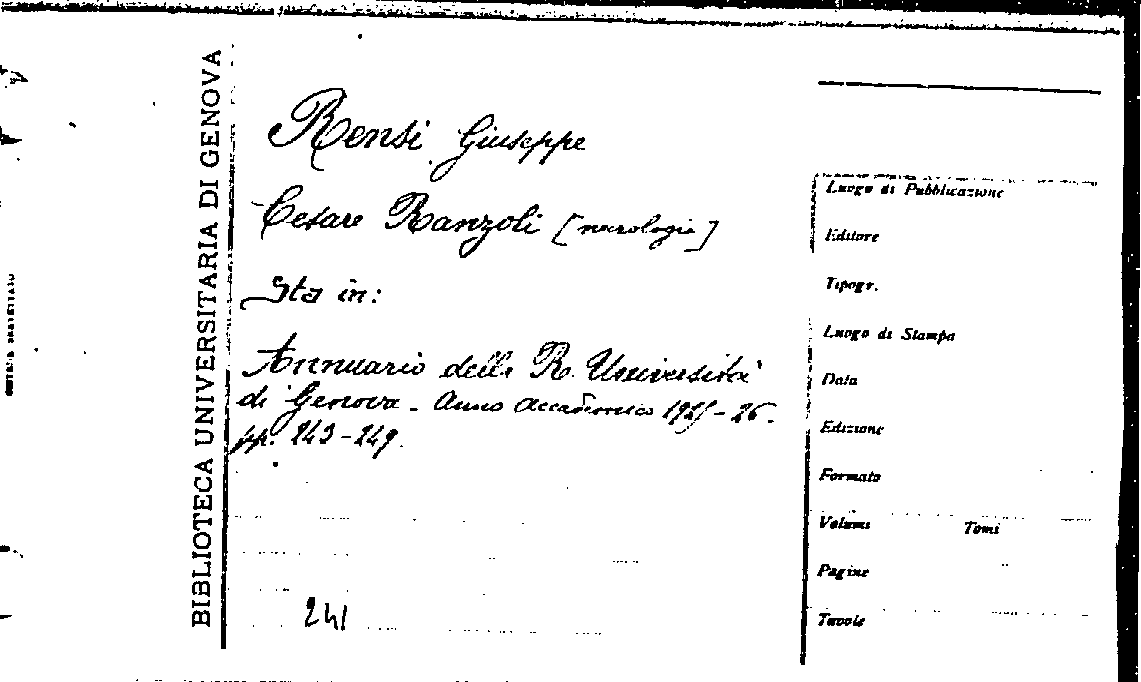 BIBLIOTECA UNIVERSITARIA DI GENOVA
Rensi Giuseppe
Cesare Ranzoli [necrologio]
Sta in:
Annuario della R. Università
di Genova - Anno accademico 1925-26.
pp. 243-249.
241
Luogo di Pubblicazione
Editore
Tipogr.
Luogo di Stampa
Data
Edizione
Formato
Volumi Tomi
Pagine
Tavole